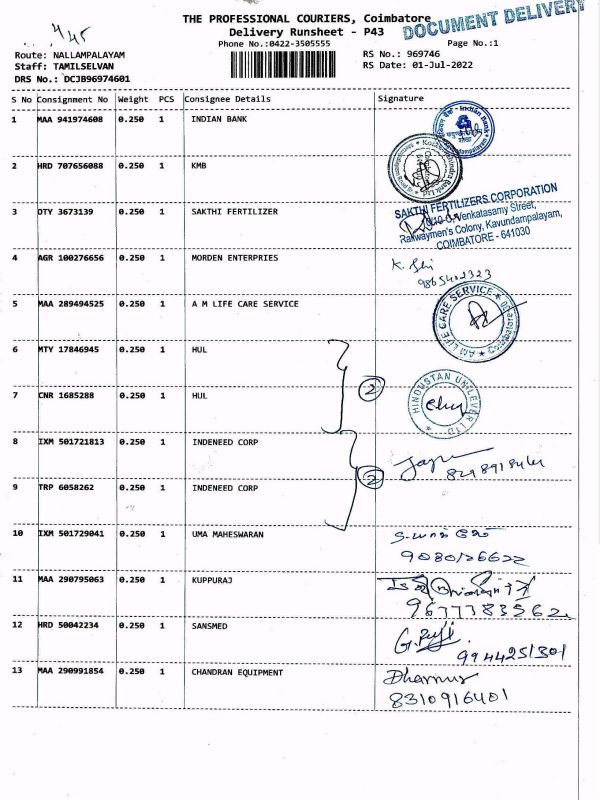 THE PROFESSIONAL COURIERS, Coimbatore
DOCUMENT DELIVERY
Delivery Runsheet - P43
Phone No.:0422-3505555
Page No.:1
Route: NALLAMPALAYAM
RS No.: 969746
Staff: TAMILSELVAN
RS Date: 01-Jul-2022
DRS No.: DCJB96974601
S No Consignment No Weight PCS Consignee Details Signature
1 MAA 941974608 0.250 1 INDIAN BANK
Indian Bank
2 HRD 707656088 0.250 1 KMB
3 OTY 3673139 0.250 1 SAKTHI FERTILIZER
SAKTHI FERTILIZERS CORPORATION
Venkatasamy Street,
Railwaymen's Colony, Kavundampalayam,
COIMBATORE - 641030
4 AGR 100276656 0.250 1 MORDEN ENTERPRIES
9865402323
5 MAA 289494525 0.250 1 A M LIFE CARE SERVICE
AM LIFE CARE SERVICE ★ Coimbatore
6 MTY 17846945 0.250 1 HUL
2
7 CNR 1685288 0.250 1 HUL
HINDUSTAN UNILEVER LTD
8 IXM 501721813 0.250 1 INDENEED CORP
2
9 TRP 6058262 0.250 1 INDENEED CORP
10 IXM 501729041 0.250 1 UMA MAHESWARAN
9080126622
11 MAA 290795063 0.250 1 KUPPURAJ
9677783562
12 HRD 50042234 0.250 1 SANSMED
9944251301
13 MAA 290991854 0.250 1 CHANDRAN EQUIPMENT
8310916401